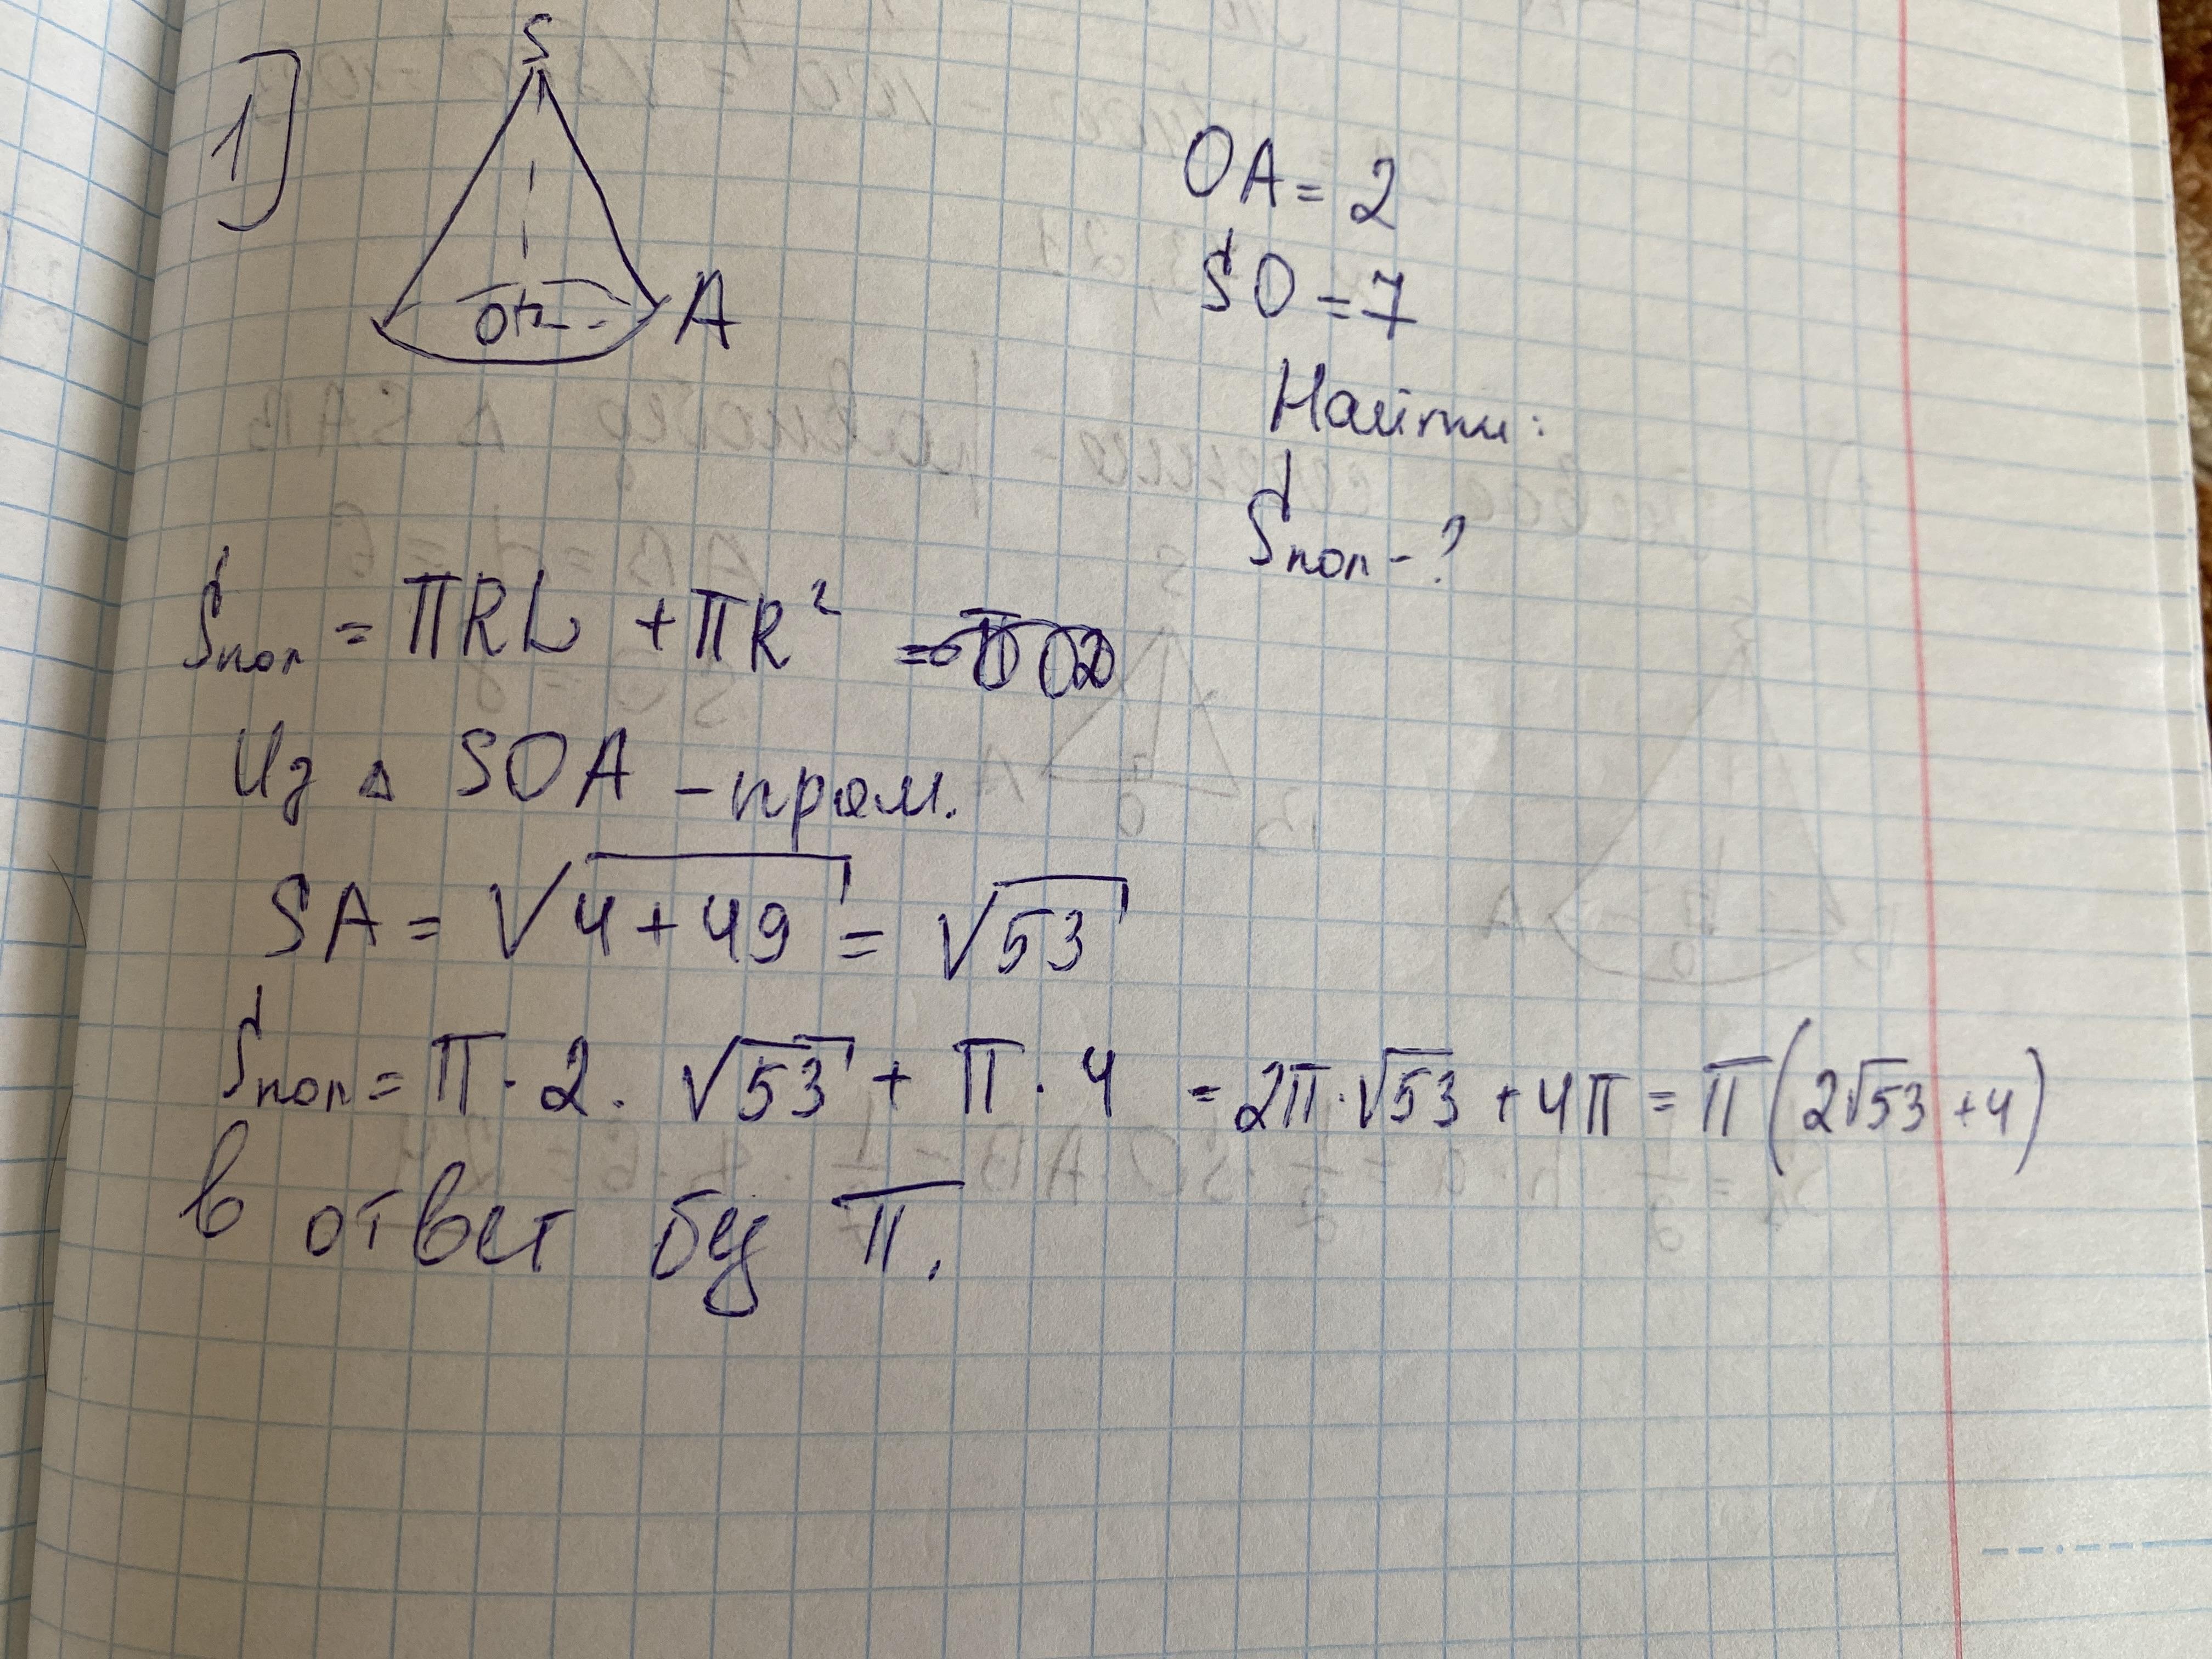 1)
S
O
A
OA = 2
SO = 7
Найти:
Sпол - ?
Sпол = πRL + πR²
Из △ SOA - прям.
SA = √4+49 = √53
Sпол = π · 2 · √53 + π · 4 = 2π·√53 + 4π = π(2√53 + 4)
В ответ бу π.